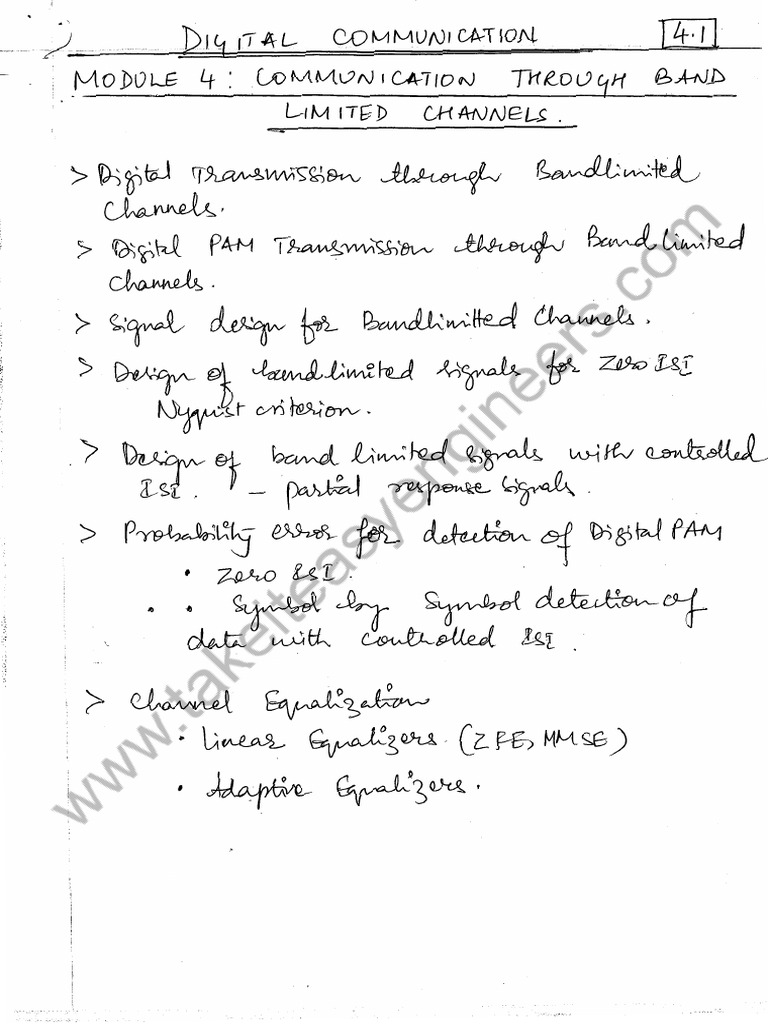 DIGITAL COMMUNICATION 4.1
MODULE 4: COMMUNICATION THROUGH BAND
LIMITED CHANNELS.
> Digital Transmission through Bandlimited
Channels.
> Digital PAM Transmission through Bandlimited
Channels.
> Signal design for Bandlimitted Channels.
> Design of bandlimited signals for Zero ISI
Nyquist criterion.
> Design of band limited signals with controlled
ISI. - partial response signals.
> Probability error for detection of Digital PAM
• Zero ISI.
• • Symbol by Symbol detection of
data with controlled ISI.
> Channel Equalization
• Linear Equalizers (ZFE, MMSE)
• Adaptive Equalizers.
www.takeiteasyengineers.com